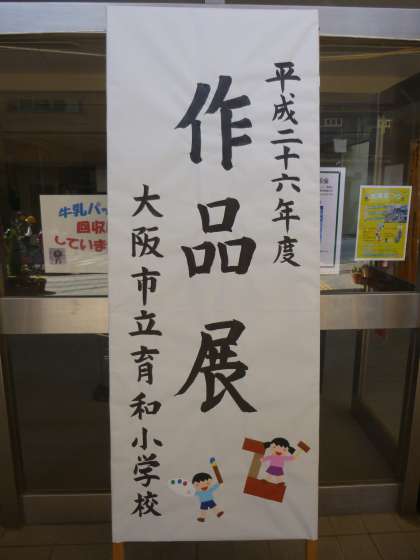 平成二十六年度
作品展
大阪市立育和小学校
牛乳パッ
回収
していま